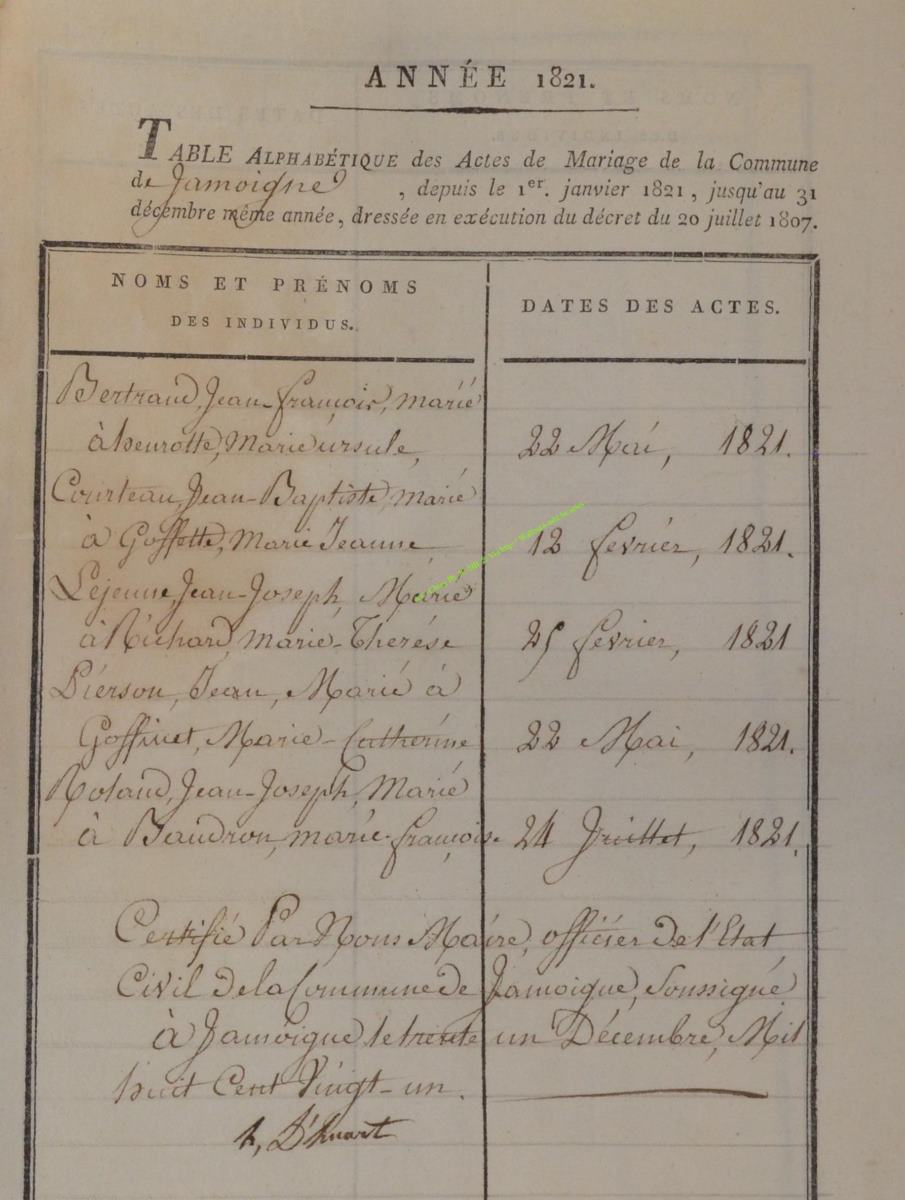 ANNÉE 1821.
TABLE ALPHABÉTIQUE des Actes de Mariage de la Commune
de Jamoigne, depuis le 1er. janvier 1821, jusqu'au 31
décembre même année, dressée en exécution du décret du 20 juillet 1807.
NOMS ET PRÉNOMS
DES INDIVIDUS.
DATES DES ACTES.
Bertrand, Jean-françois, marié
à henrotte, Marie ursule, 22 Mai, 1821.
Courteau, Jean-Baptiste, marié
à Goffette, Marie Jeanne 12 fevrier, 1821.
Lejeune, Jean-Joseph, Marié
à Richard, marie-Thérése 25 fevrier, 1821
Piérson, Jean, Marié à
Goffinet, Marie-Catherine 22 Mai, 1821.
Roland, Jean-Joseph, Marié
à Baudron, marie-françoise 24 Juillet, 1821.
Certifié Par Nous Maire, officier de l'Etat
Civil de la Commune de Jamoigne, Soussigné
à Jamoigne le trente un Décembre, Mil
huit Cent Vingt-un.
D'huart